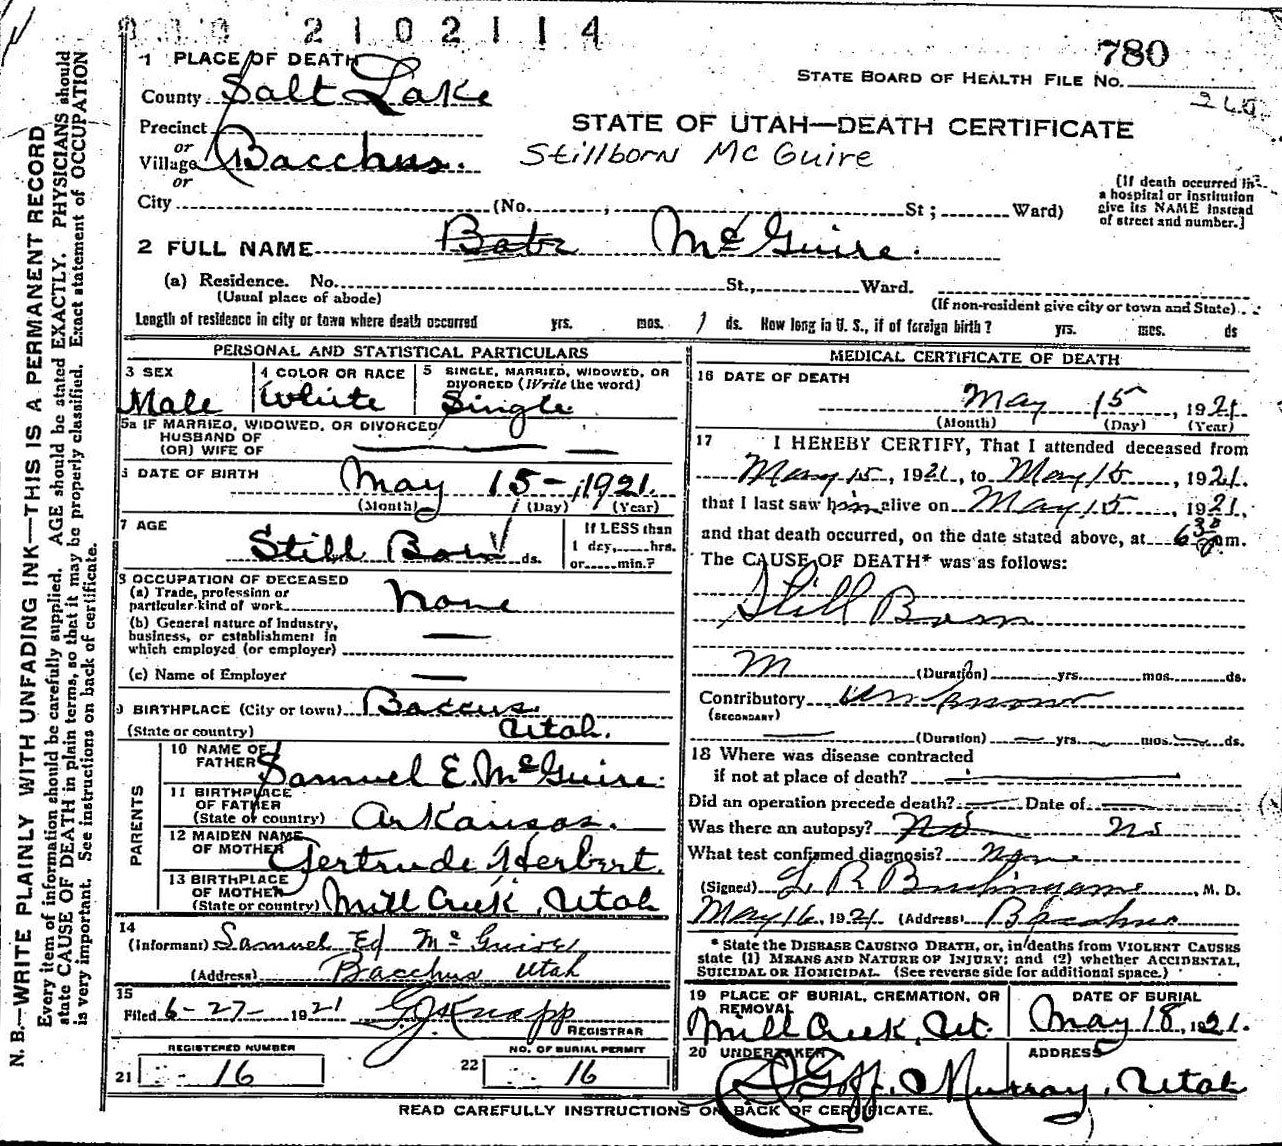 2102114
780
1 PLACE OF DEATH
STATE BOARD OF HEALTH FILE No.
County Salt Lake
Precinct
or
Village Bacchus.
or
STATE OF UTAH—DEATH CERTIFICATE
Stillborn McGuire
(If death occurred in a hospital or institution give its NAME instead of street and number.]
City (No. , St ; Ward)
2 FULL NAME McGuire.
(a) Residence. No. St., Ward.
(Usual place of abode) (If non-resident give city or town and State)
Length of residence in city or town where death occurred yrs. mos. ds. How long in U. S., if of foreign birth? yrs. mos. ds
PERSONAL AND STATISTICAL PARTICULARS
3 SEX
Male
4 COLOR OR RACE
White
5 SINGLE, MARRIED, WIDOWED, OR
DIVORCED (Write the word)
Single
5a IF MARRIED, WIDOWED, OR DIVORCED
HUSBAND OF
(OR) WIFE OF
6 DATE OF BIRTH
May 15-, 1921.
(Month) (Day) (Year)
7 AGE
Still Born ds.
If LESS than
1 day, hrs.
or min.?
8 OCCUPATION OF DECEASED
(a) Trade, profession or
particular kind of work None
(b) General nature of Industry,
business, or establishment in
which employed (or employer)
(c) Name of Employer
9 BIRTHPLACE (City or town) Baccus.
(State or country) Utah.
PARENTS
10 NAME OF
FATHER Samuel E. McGuire.
11 BIRTHPLACE
OF FATHER
(State or country) Arkansas.
12 MAIDEN NAME
OF MOTHER Gertrude Herbert.
13 BIRTHPLACE
OF MOTHER
(State or country) Mill Creek, Utah
14
(Informant) Samuel Ed McGuire
(Address) Bacchus Utah
15
Filed 6-27- 1921 G J Knapp
REGISTRAR
REGISTERED NUMBER
21 16
NO. OF BURIAL PERMIT
22 16
MEDICAL CERTIFICATE OF DEATH
16 DATE OF DEATH
May 15, 1921.
(Month) (Day) (Year)
17 I HEREBY CERTIFY, That I attended deceased from
May 15, 1921, to May 15, 1921.
that I last saw him alive on May 15, 1921,
and that death occurred, on the date stated above, at 6 30 m.
The CAUSE OF DEATH* was as follows:
Still Born
(Duration) yrs. mos. ds.
Contributory Unknown
(SECONDARY)
(Duration) yrs. mos. ds.
18 Where was disease contracted
if not at place of death?
Did an operation precede death? Date of
Was there an autopsy? No No
What test confirmed diagnosis? None
(Signed) L. R. , M. D.
May 16, 1921 (Address) Bacchus
* State the DISEASE CAUSING DEATH, or, in deaths from VIOLENT CAUSES
state (1) MEANS AND NATURE OF INJURY; and (2) whether ACCIDENTAL,
SUICIDAL OR HOMICIDAL. (See reverse side for additional space.)
19 PLACE OF BURIAL, CREMATION, OR
REMOVAL
Mill Creek, Ut.
DATE OF BURIAL
May 18, 1921.
20 UNDERTAKER
Goff.
ADDRESS
Murray, Utah
READ CAREFULLY INSTRUCTIONS ON BACK OF CERTIFICATE.
N. B.—WRITE PLAINLY WITH UNFADING INK—THIS IS A PERMANENT RECORD
Every item of information should be carefully supplied. AGE should be stated EXACTLY. PHYSICIANS should
state CAUSE OF DEATH in plain terms, so that it may be properly classified. Exact statement of OCCUPATION
is very important. See instructions on back of certificate.